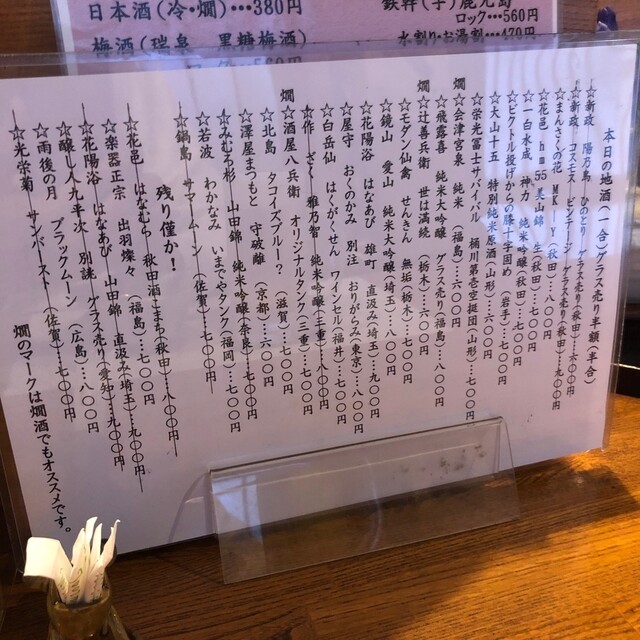 日本酒(冷・燗)…380円
梅酒(瑞泉 黒糖梅酒)
ロック…560円
水割り・お湯割…470円
本日の地酒(一合)グラス売り半額(半合)
☆新政 陽乃鳥 ひのとり グラス売り(秋田)
☆新政 コスモス・ビンテージ グラス売り(秋田)
☆まんさくの花 MK-Y(秋田)…八〇〇円
☆花邑 hm55 美山錦 生(秋田)…七〇〇円
☆一白水成 神力 純米吟醸(秋田)…七〇〇円
☆ビクトル投げからの膝十字固め(岩手)…七〇〇円
☆大山十五 特別純米原酒(山形)…六〇〇円
☆栄光冨士サバイバル 桶川第壱空挺団(山形)…七〇〇円
燗☆会津宮泉 純米(福島)…六〇〇円
☆飛露喜 純米大吟醸 グラス売り(福島)…八〇〇円
燗☆辻善兵衛 世は満続(栃木)…六〇〇円
☆モダン仙禽 せんきん 無垢(栃木)…六〇〇円
☆鏡山 愛山 純米大吟醸(埼玉)…七〇〇円
☆花陽浴 はなあび 雄町 直汲み(埼玉)…九〇〇円
☆屋守 おくのかみ 別注 おりがらみ(東京)…八〇〇円
☆白岳仙 はくがくせん ワインセル(福井)…七〇〇円
☆作 ざく 雅乃智 純米吟醸(三重)…八〇〇円
燗☆酒屋八兵衛 オリジナルタンク(三重)…七〇〇円
☆北島 タコイズブルー?(滋賀)…七〇〇円
☆澤屋まつもと 守破離(京都)…六〇〇円
☆みむろ杉 山田錦 純米吟醸(奈良)…七〇〇円
☆若波 わかなみ いまでやタンク(福岡)…七〇〇円
☆鍋島 サマームーン(佐賀)…七〇〇円
残り僅か!
☆花邑 はなむら 秋田酒こまち(秋田)…八〇〇円
☆楽器正宗 出羽燦々(福島)…七〇〇円
☆花陽浴 はなあび 山田錦 直汲み(埼玉)…九〇〇円
☆醸し人九平次 別誂 グラス売り(愛知)…九〇〇円
☆雨後の月 ブラックムーン(広島)…八〇〇円
☆光栄菊 サンバースト(佐賀)…七〇〇円
燗のマークは燗酒でもオススメです。